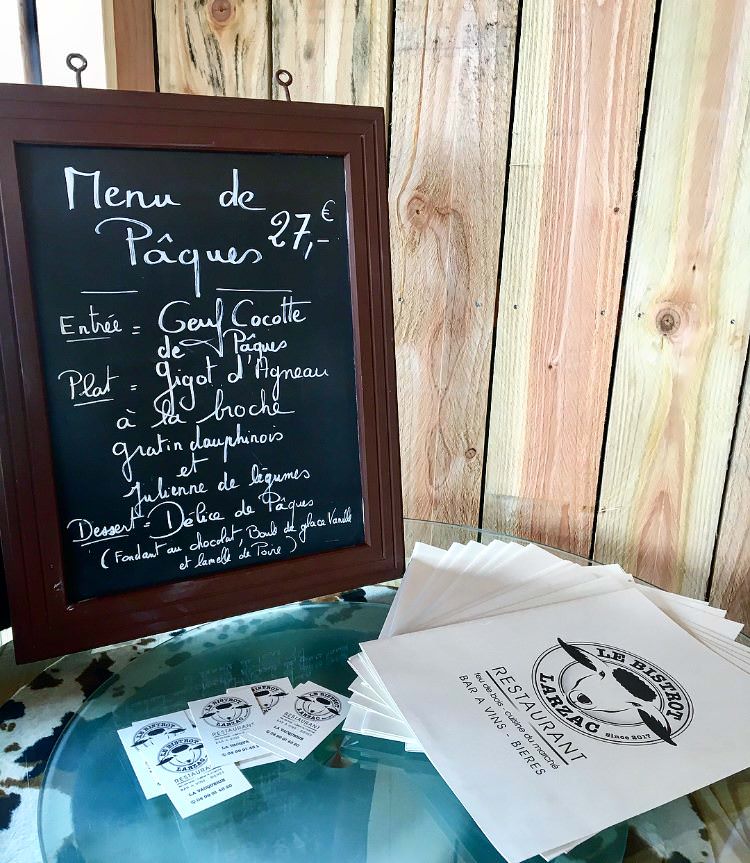 Menu de
Pâques 27,- €
Entrée = Oeuf Cocotte
de Pâques
Plat = Gigot d'Agneau
à la broche
gratin dauphinois
et
Julienne de légumes
Dessert = Délice de Pâques
(Fondant au chocolat, Boule de glace Vanille
et lamelle de Poire)
LE BISTROT
LARZAC
since 2017
RESTAURANT
feu de bois - cuisine du marché
BAR A VINS - BIERES
LE BISTROT
LARZAC
RESTAURANT
LA VACQUERIE
LE BISTROT
LARZAC
RESTAURANT
LE BISTROT
LARZAC
RESTAURANT
LA VACQUERIE